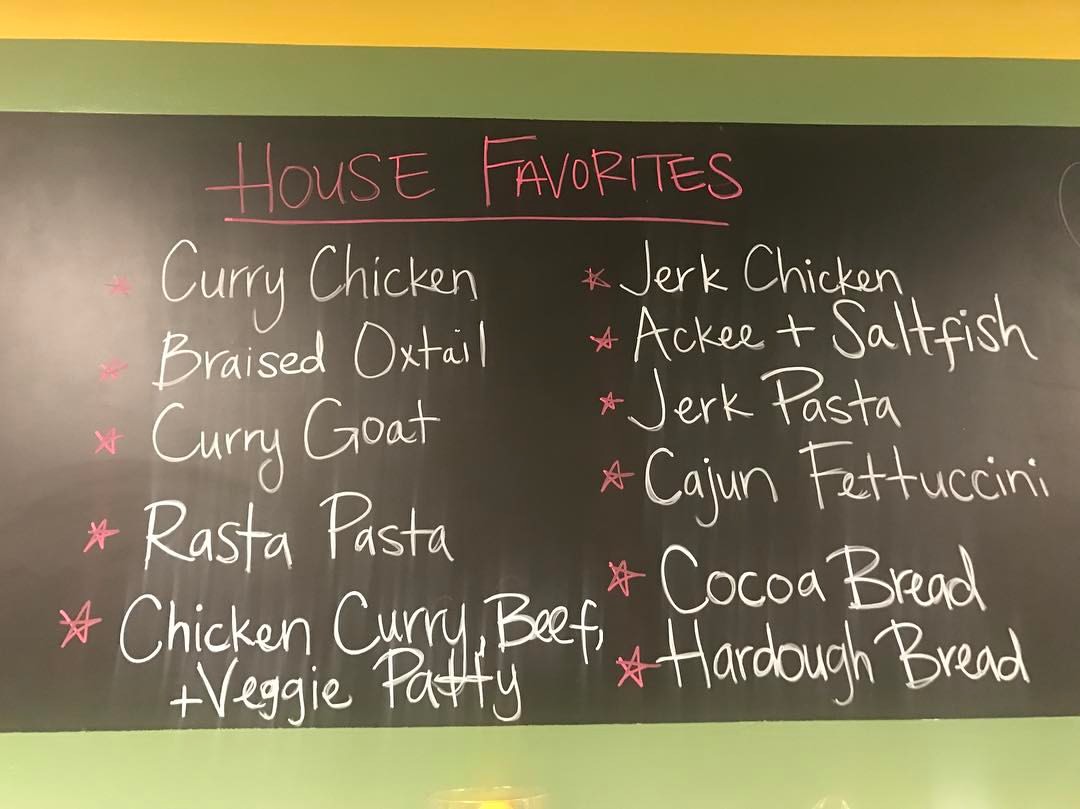 HOUSE FAVORITES
Curry Chicken
Braised Oxtail
Curry Goat
Rasta Pasta
Chicken Curry, Beef,
+Veggie Patty
Jerk Chicken
Ackee + Saltfish
Jerk Pasta
Cajun Fettuccini
Cocoa Bread
Hardough Bread